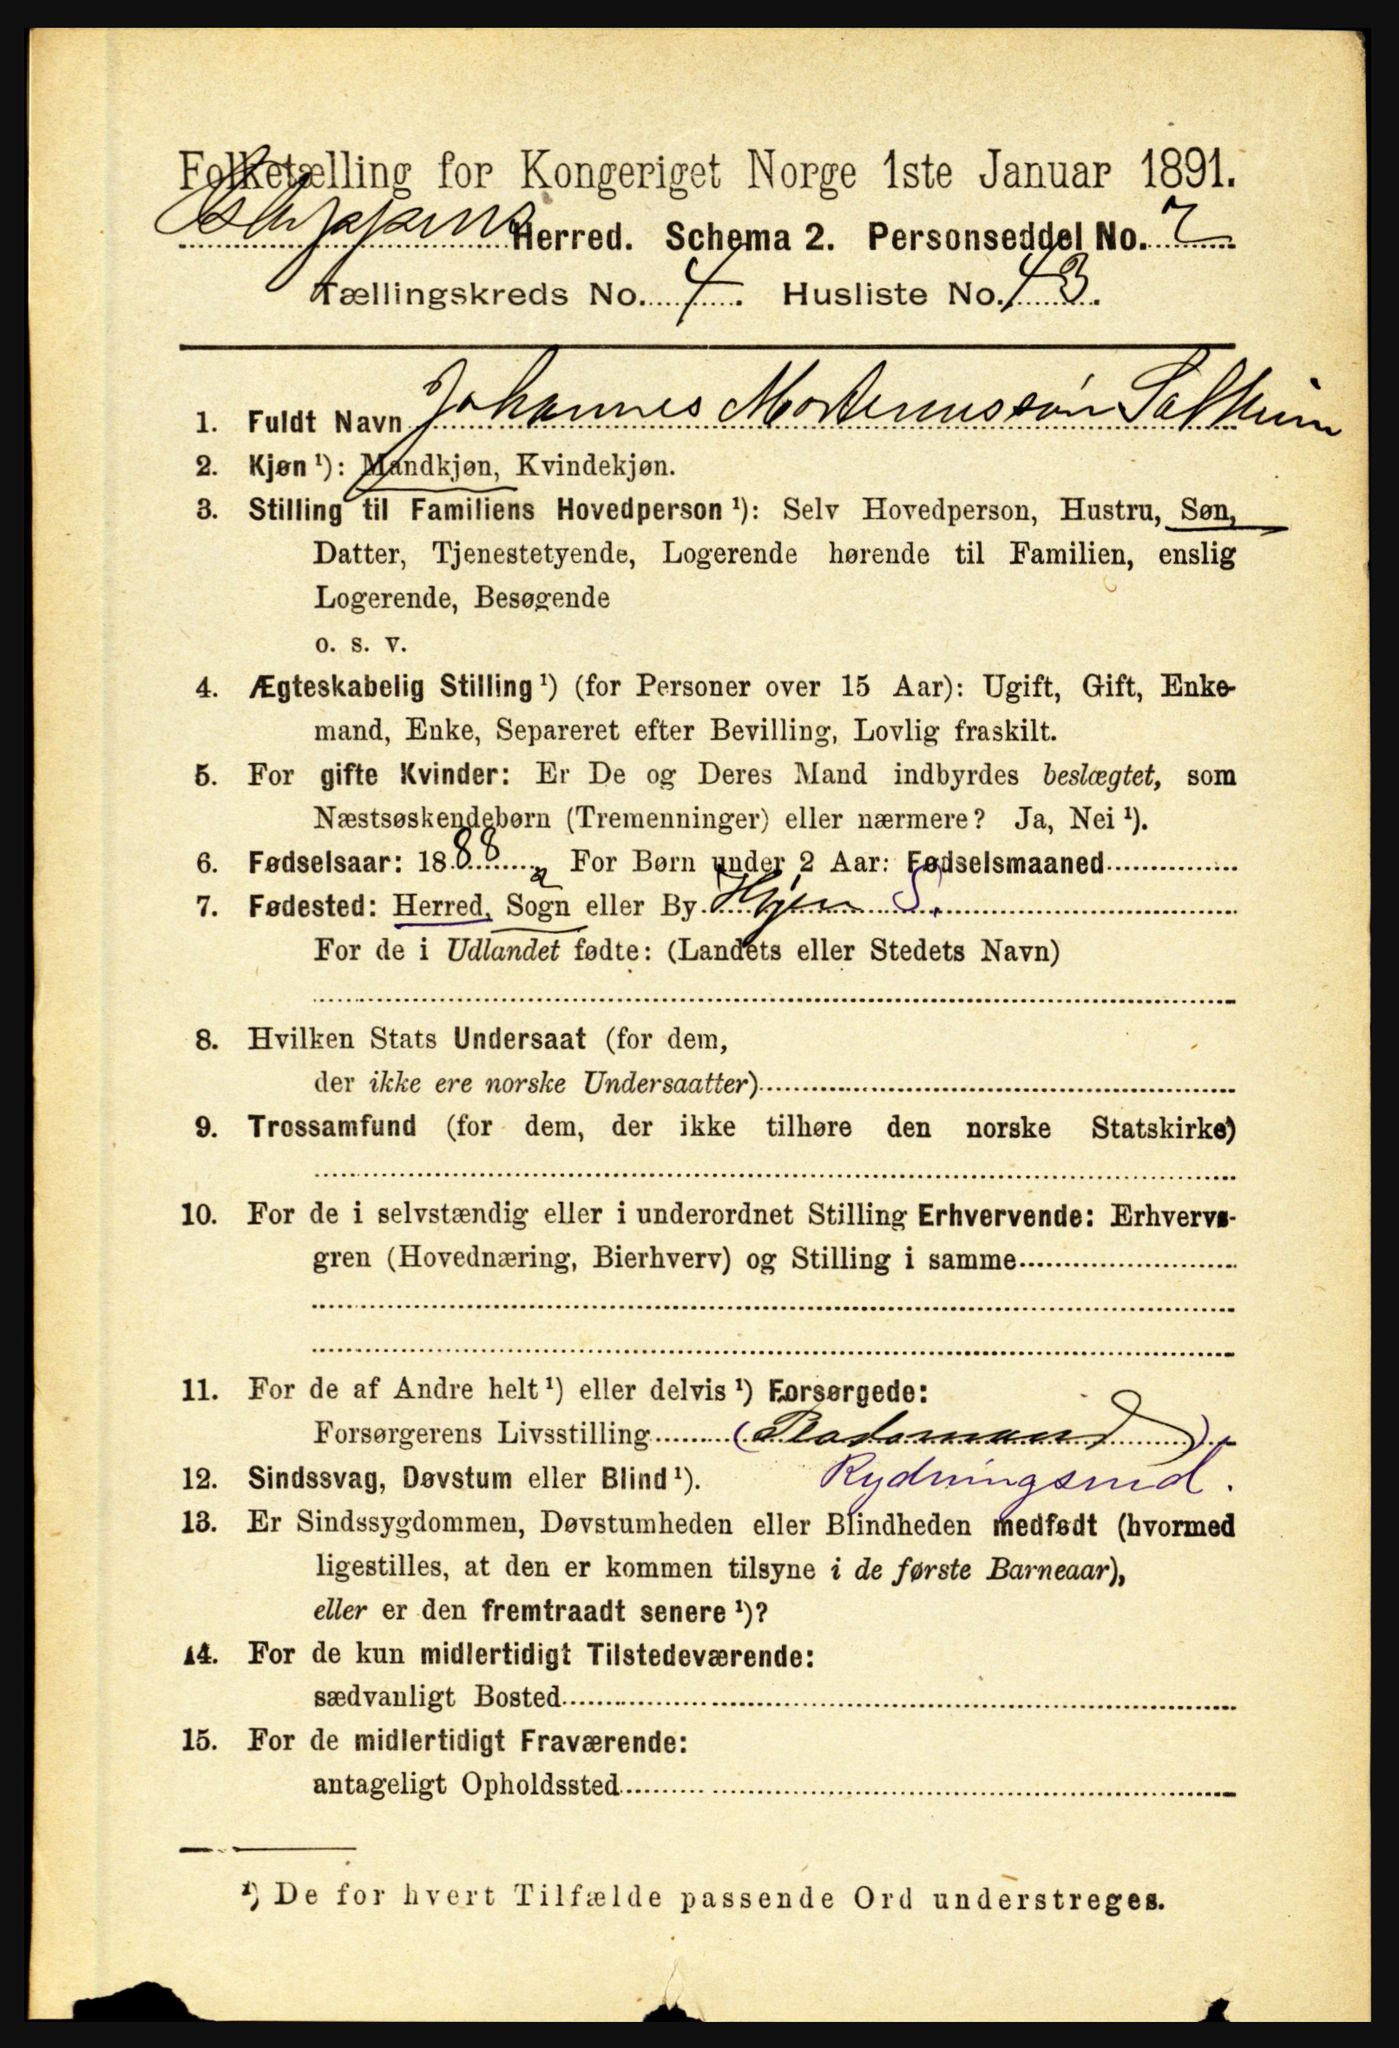 Folketælling for Kongeriget Norge 1ste Januar 1891.
Herred. Schema 2. Personseddel No. 7
Tællingskreds No. 4. Husliste No. 43.
1. Fuldt Navn Johannes Mortenussøn Solheim
2. Kjøn ¹): Mandkjøn, Kvindekjøn.
3. Stilling til Familiens Hovedperson ¹): Selv Hovedperson, Hustru, Søn,
Datter, Tjenestetyende, Logerende hørende til Familien, enslig
Logerende, Besøgende
o. s. v.
4. Ægteskabelig Stilling ¹) (for Personer over 15 Aar): Ugift, Gift, Enke-
mand, Enke, Separeret efter Bevilling, Lovlig fraskilt.
5. For gifte Kvinder: Er De og Deres Mand indbyrdes beslægtet, som
Næstsøskendebørn (Tremenninger) eller nærmere? Ja, Nei ¹).
6. Fødselsaar: 1888 For Børn under 2 Aar: Fødselsmaaned
7. Fødested: Herred, Sogn eller By Hyen S.
For de i Udlandet fødte: (Landets eller Stedets Navn)
8. Hvilken Stats Undersaat (for dem,
der ikke ere norske Undersaatter)
9. Trossamfund (for dem, der ikke tilhøre den norske Statskirke)
10. For de i selvstændig eller i underordnet Stilling Erhvervende: Erhvervs-
gren (Hovednæring, Bierhverv) og Stilling i samme
11. For de af Andre helt ¹) eller delvis ¹) Forsørgede:
Forsørgerens Livsstilling (Pladsmand)
12. Sindssvag, Døvstum eller Blind ¹). Rydningsmd.
13. Er Sindssygdommen, Døvstumheden eller Blindheden medfødt (hvormed
ligestilles, at den er kommen tilsyne i de første Barneaar),
eller er den fremtraadt senere ¹)?
14. For de kun midlertidigt Tilstedeværende:
sædvanligt Bosted
15. For de midlertidigt Fraværende:
antageligt Opholdssted
¹) De for hvert Tilfælde passende Ord understreges.